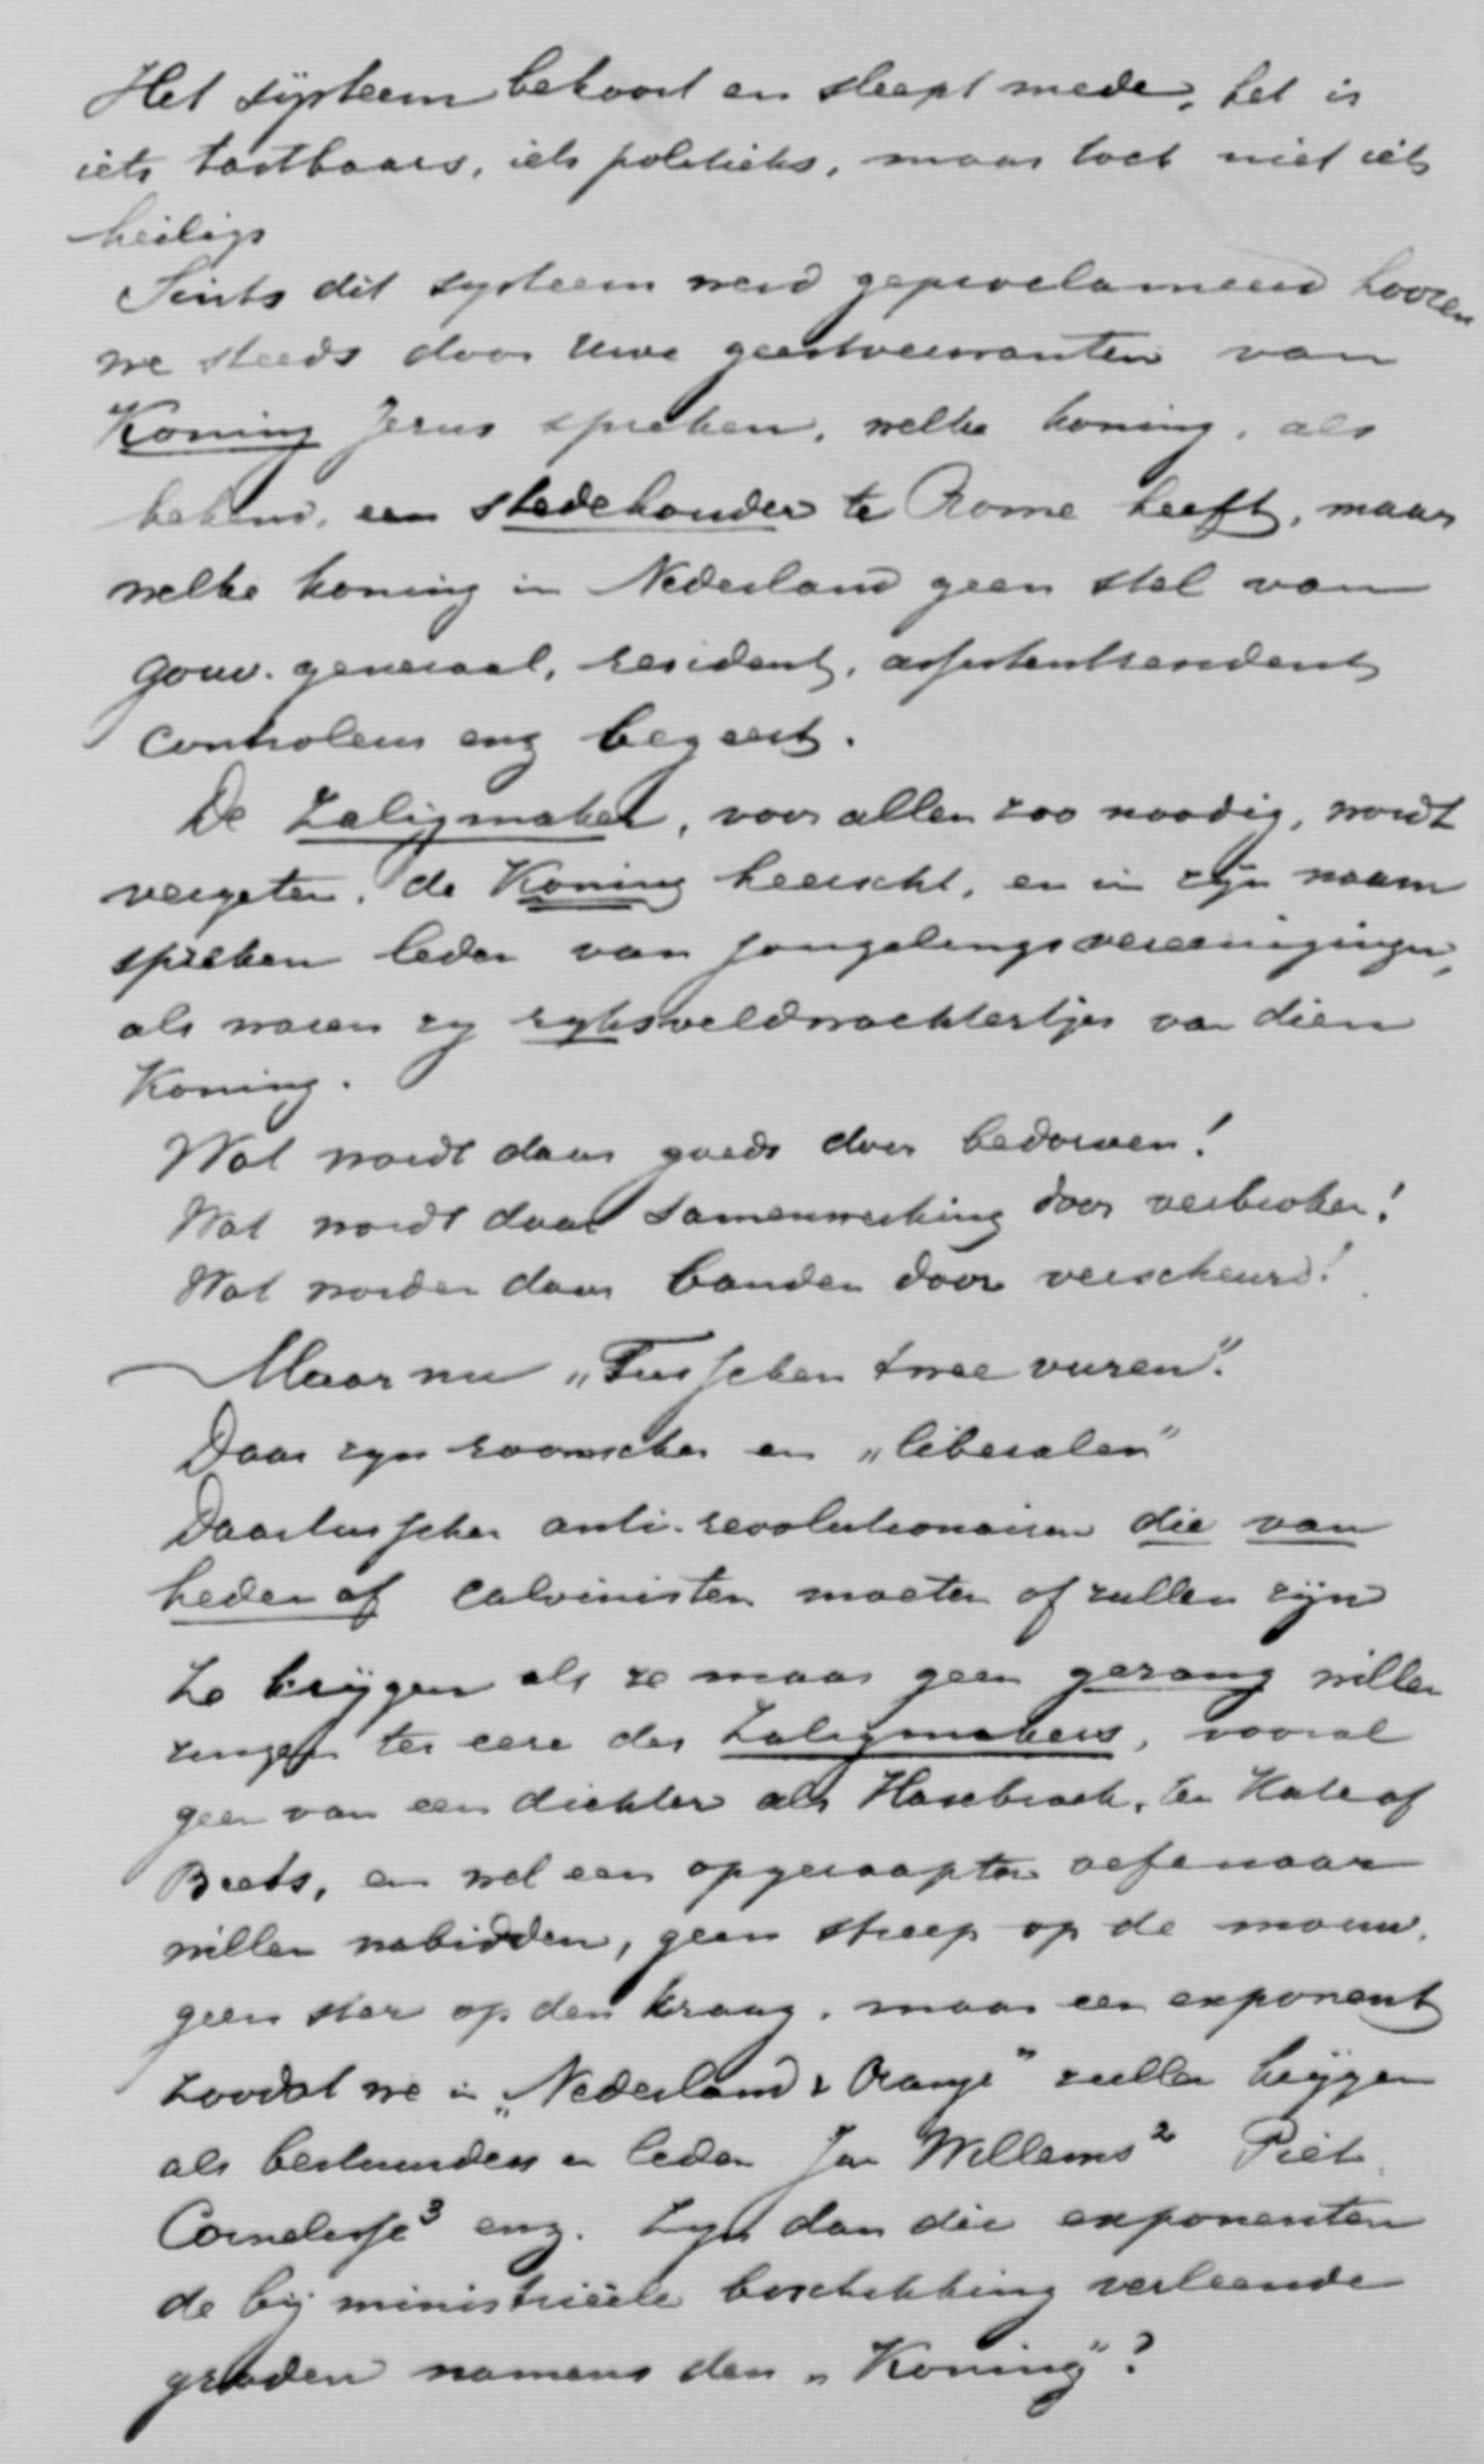 Het systeem bekoort en sleept mede, het is
iets tastbaars, iets politieks, maar toch niet iets
heiligs
Sints dit systeem werd geproclameerd hooren
we steeds door uwe geestverwanten van
Koning Jezus spreken, welke koning, als
bekend, een stedehouder te Rome heeft, maar
welke koning in Nederland geen stel van
gouv. generaal, resident, assistentresident
controleur enz begeert.
De Zaligmaker, voor allen zoo noodig, wordt
vergeten, de Koning heerscht, en in zijn naam
spreken leden van jongelingsvereenigingen,
als waren zy ryksveldwachtertjes van dien
Koning.
Wat wordt daar goeds door bedorven!
Wat wordt daar samenwerking door verbroken!
Wat worden daar banden door verscheurd!
Maar nu „Tusschen twee vuren".
Daar zyn roomschen en „liberalen"
Daartusschen anti-revolutionairen die van
heden af calvinisten moeten of zullen zijn
Ze krijgen als ze maar geen gezang willen
zingen ter eere des Zaligmakers, vooral
geen van een dichter als Hasebroek, ten Kate of
Beets, en wel een opgeraapten oefenaar
willen nabidden, geen streep op de mouw,
geen ster op den kraag, maar een exponent
zoodat we in „Nederland & Oranje" zullen krijgen
als bestuurders en leden Jan Willems² Piet
Cornelisse³ enz. Zyn dan die exponenten
de bij ministrieële beschikking verleende
graden namens den „Koning"?